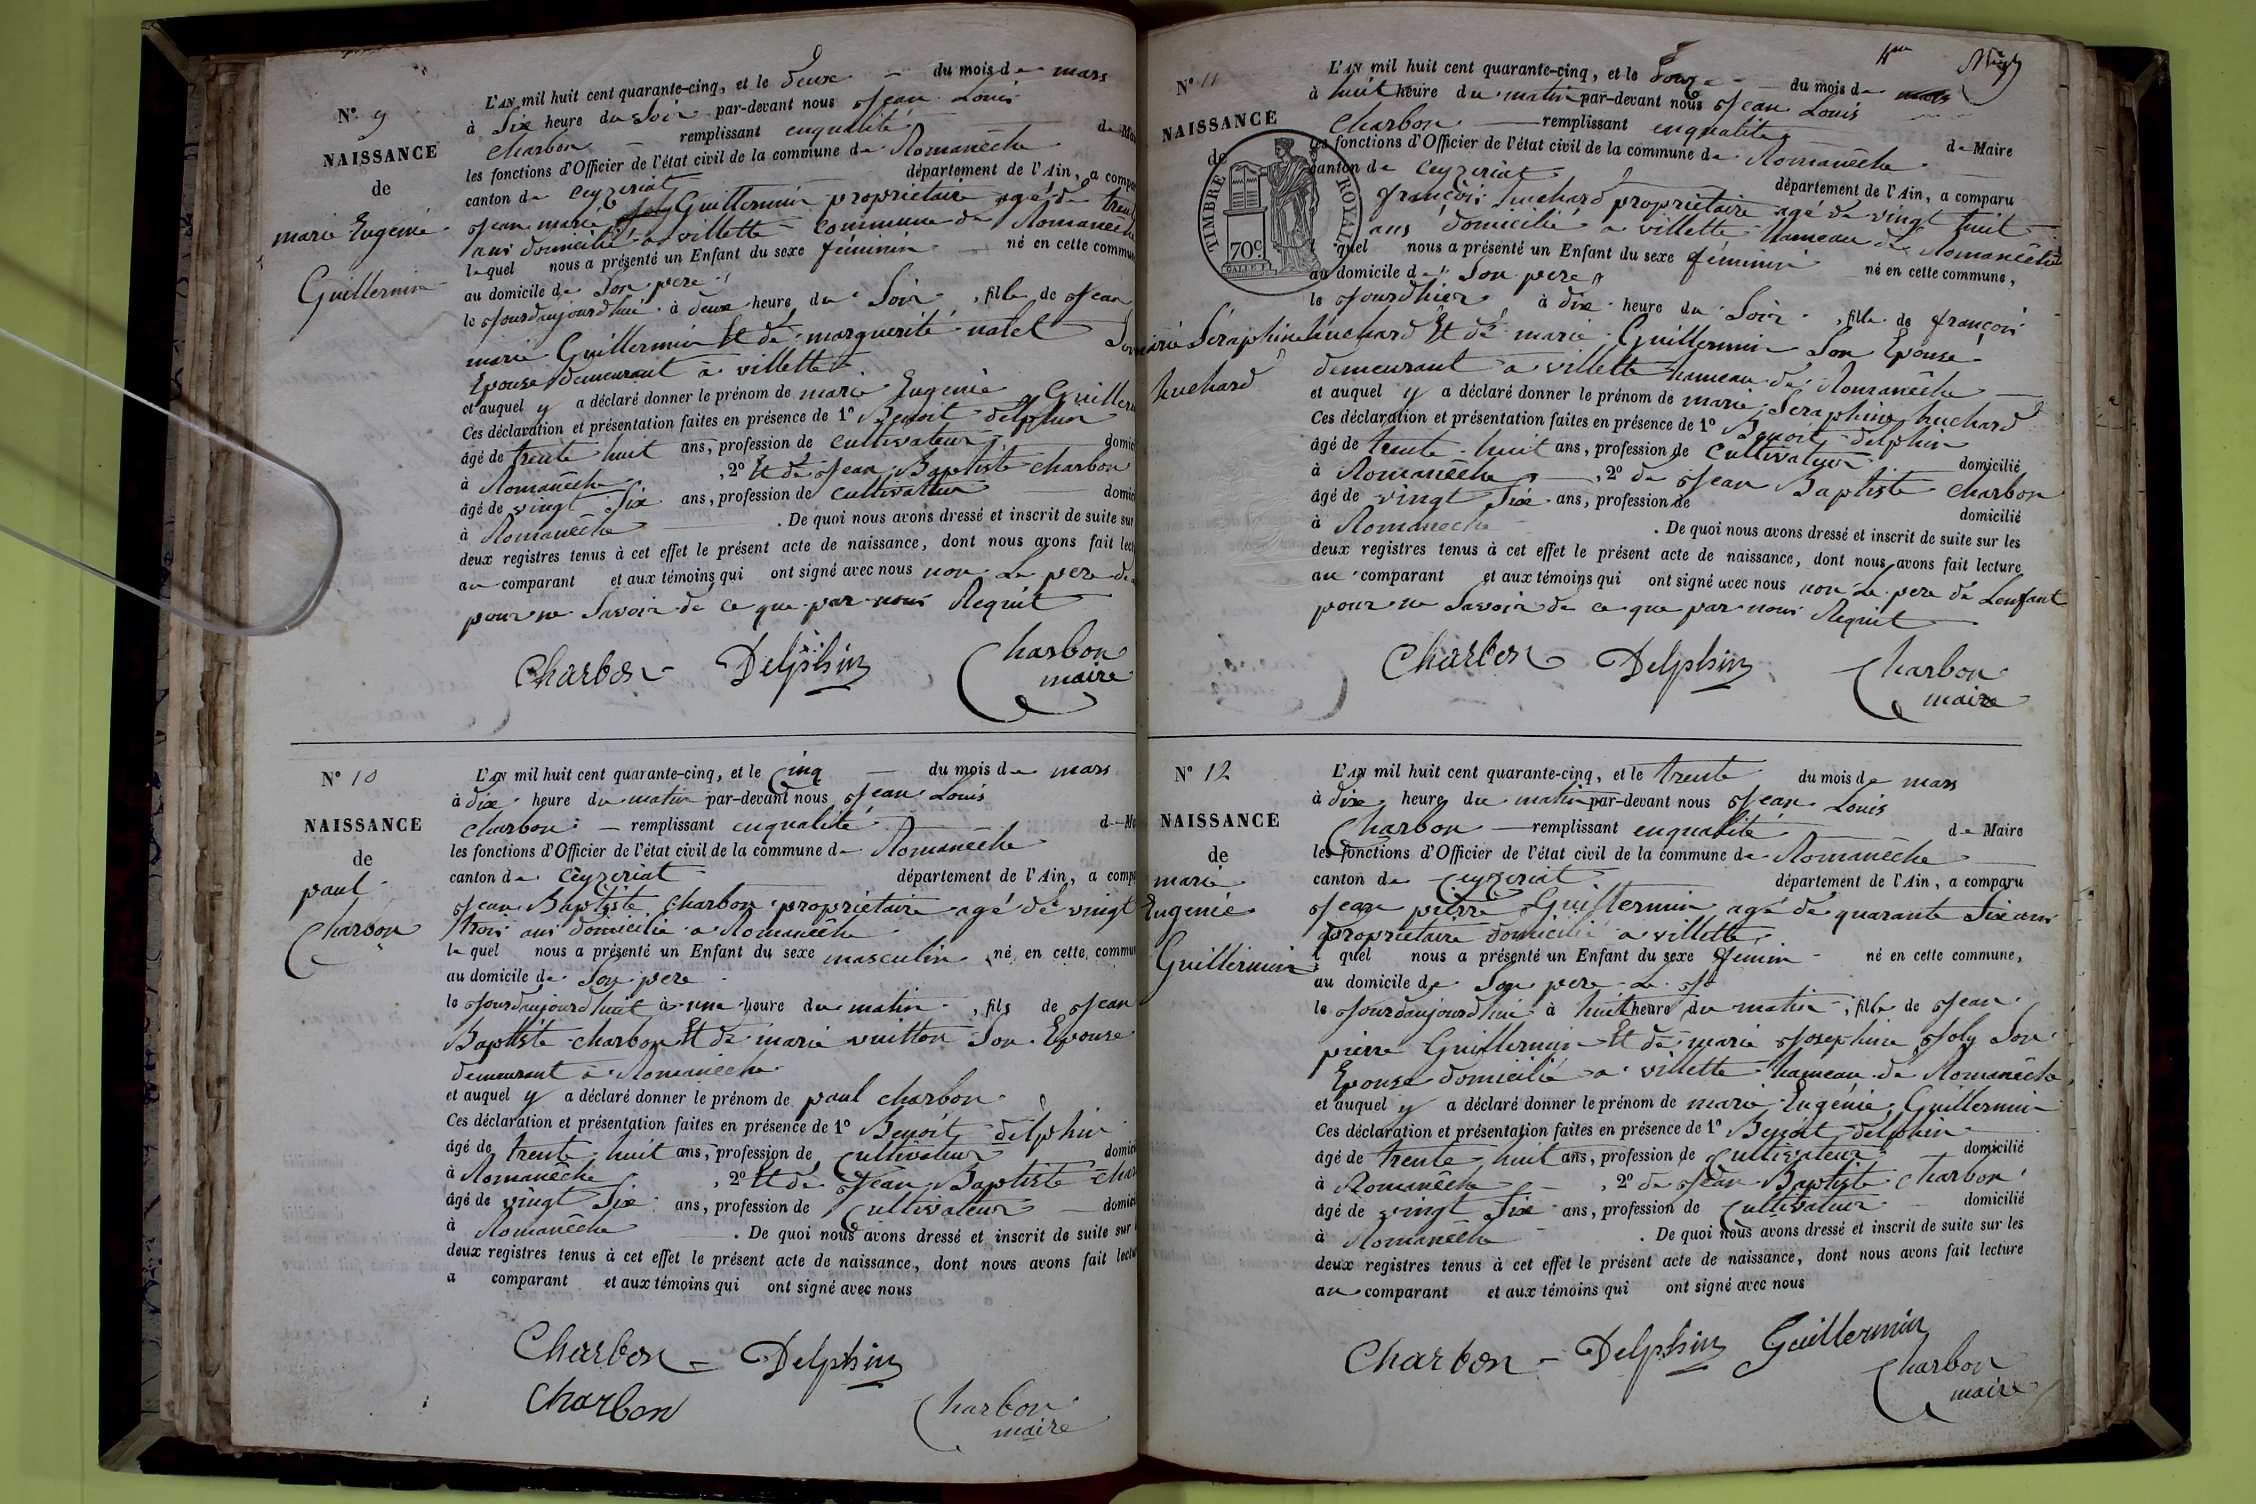 N° 9
NAISSANCE
de
marie Eugenie
Guillermin
L'AN mil huit cent quarante-cinq, et le deux du mois de mars
à Six heure du Soir par-devant nous Jean Louis
Charbon remplissant enqualité de Mai
les fonctions d'Officier de l'état civil de la commune de Romanèche
canton de Ceyzeriat département de l'Ain, a compa
Jean marie Guillermin propriétaire agé de trent
ans domicilié a villette commune de Romanèche
le quel nous a présenté un Enfant du sexe féminin né en cette commun
au domicile de Son pere
le Jourdaujourdhui à deux heure du Soir, fille de Jean
marie Guillermin Et de marguerite natel Son
Epouse demeurant à villette
et auquel y a déclaré donner le prénom de marie Eugenie Guillerm
Ces déclaration et présentation faites en présence de 1° Benoit delphin
âgé de trente huit ans, profession de Cultivateur domici
à Romanèche, 2° Et de Jean Baptiste Charbon
âgé de vingt Six ans, profession de Cultivateur domici
à Romanèche. De quoi nous avons dressé et inscrit de suite sur
deux registres tenus à cet effet le présent acte de naissance, dont nous avons fait lectu
au comparant et aux témoins qui ont signé avec nous non Le pere de
pour ne Savoir de ce que par nous Requit
Charbon Delphin Charbon
maire
N° 10
NAISSANCE
de
paul
Charbon
L'AN mil huit cent quarante-cinq, et le Cinq du mois de mars
à dix heure du matin par-devant nous Jean Louis
Charbon remplissant enqualité de Ma
les fonctions d'Officier de l'état civil de la commune de Romanèche
canton de Ceyzeriat département de l'Ain, a compa
Jean Baptiste Charbon propriétaire agé de vingt
trois ans domicilié a Romanèche
le quel nous a présenté un Enfant du sexe masculin né en cette commun
au domicile de Son pere
le Jourdaujourdhuit à une heure du matin, fils de Jean
Baptiste Charbon Et de marie vuitton Son Epouse
demeurant a Romanèche
et auquel y a déclaré donner le prénom de paul charbon
Ces déclaration et présentation faites en présence de 1° Benoit delphin
âgé de trente huit ans, profession de Cultivateur domici
à Romanèche, 2° Et de Jean Baptiste Char
âgé de vingt Six ans, profession de Cultivateur domici
à Romanèche. De quoi nous avons dressé et inscrit de suite sur
deux registres tenus à cet effet le présent acte de naissance, dont nous avons fait lectu
a comparant et aux témoins qui ont signé avec nous
Charbon Delphin
Charbon Charbon
maire
N° 11
NAISSANCE
de
TIMBRE ROYAL
70 c.
marie Séraphine
huchard
L'AN mil huit cent quarante-cinq, et le Douze du mois de mars
à huit heure du matin par-devant nous Jean Louis
Charbon remplissant enqualité de Maire
les fonctions d'Officier de l'état civil de la commune de Romanèche
canton de Ceyzeriat département de l'Ain, a comparu
françois huchard propriétaire agé de vingt huit
ans domicilié a villette hameau de Romanèche
quel nous a présenté un Enfant du sexe féminin né en cette commune,
au domicile de Son pere
le Jourdhier à dix heure du Soir, fille de françois
huchard Et de marie Guillermin Son Epouse
demeurant a villette hameau de Romanèche
et auquel y a déclaré donner le prénom de marie Seraphine huchard
Ces déclaration et présentation faites en présence de 1° Benoit delphin
âgé de trente huit ans, profession de Cultivateur domicilié
à Romanèche, 2° de Jean Baptiste Charbon
âgé de vingt Six ans, profession de domicilié
à Romanèche. De quoi nous avons dressé et inscrit de suite sur les
deux registres tenus à cet effet le présent acte de naissance, dont nous avons fait lecture
au comparant et aux témoins qui ont signé avec nous non Le pere de Lenfant
pour ne Savoir de ce que par nous Requit
Charbon Delphin Charbon
maire
N° 12
NAISSANCE
de
marie
Eugenie
Guillermin
L'AN mil huit cent quarante-cinq, et le trente du mois de mars
à dix heure du matin par-devant nous Jean Louis
Charbon remplissant enqualité de Maire
les fonctions d'Officier de l'état civil de la commune de Romanèche
canton de Ceyzeriat département de l'Ain, a comparu
Jean pierre Guillermin agé de quarante Six ans
propriétaire domicilié a villette
l quel nous a présenté un Enfant du sexe féminin né en cette commune,
au domicile de Son pere
le Jourdaujourdhui à huit heure du matin, fille de Jean
pierre Guillermin Et de marie Josephine Joly Son
Epouse domicilié a villette hameau de Romanèche
et auquel y a déclaré donner le prénom de marie Eugénie Guillermin
Ces déclaration et présentation faites en présence de 1° Benoit delphin
âgé de trente huit ans, profession de Cultivateur domicilié
à Romanèche, 2° de Jean Baptiste Charbon
âgé de vingt Six ans, profession de Cultivateur domicilié
à Romanèche. De quoi nous avons dressé et inscrit de suite sur les
deux registres tenus à cet effet le présent acte de naissance, dont nous avons fait lecture
au comparant et aux témoins qui ont signé avec nous
Charbon Delphin Guillermin
Charbon
maire